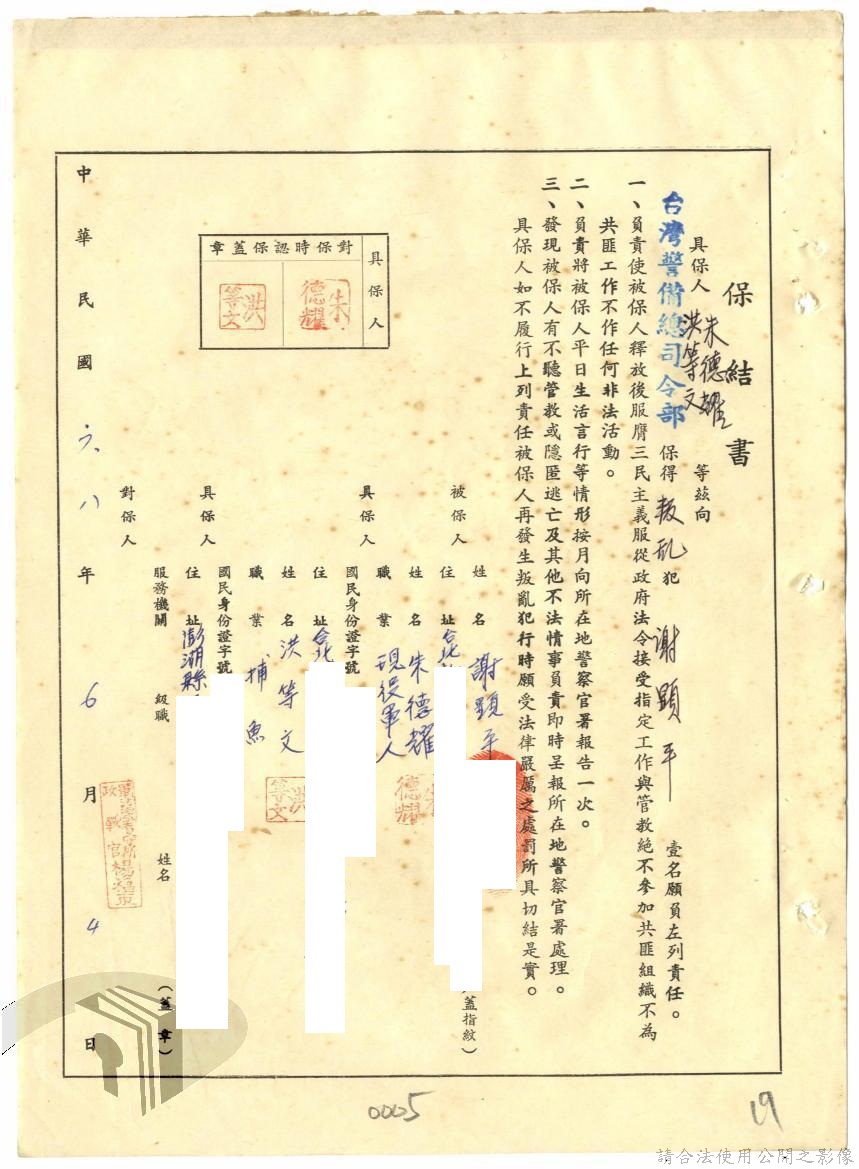 保結書
具保人 朱德耀 洪等文 等茲向
台灣警備總司令部 保得 叛乱 犯 謝顕平 壹名願負左列責任。
一、負責使被保人釋放後服膺三民主義服從政府法令接受指定工作與管教絕不參加共匪組織不為
共匪工作不作任何非法活動。
二、負責將被保人平日生活言行等情形按月向所在地警察官署報告一次。
三、發現被保人有不聽管教或隱匿逃亡及其他不法情事負責即時呈報所在地警察官署處理。
具保人如不履行上列責任被保人再發生叛亂犯行時願受法律嚴厲之處罰所具切結是實。
具保人
對保時認保蓋章
朱德耀
洪等文
被保人
姓名 謝顕平
蓋指紋）
住址
具保人
姓名 朱德耀
朱德耀
職業 現役軍人
國民身份證字號
住址
具保人
姓名 洪等文
洪等文
職業 捕魚
國民身份證字號
住址 澎湖縣
對保人
服務機關
級職
姓名
（蓋章）
中華民國 六八 年 6 月 4 日
0005
19
請合法使用公開之影像